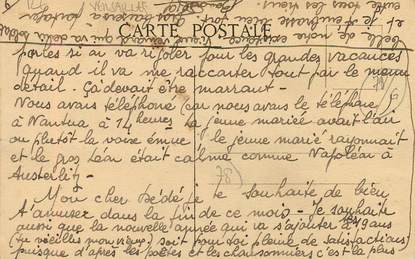 CARTE POSTALE
portes si on va rigoler pour les grandes vacances
quand il va me raccarter tout par le menu
détail. Ça devait être marrant.
Nous avons téléphoné (car nous avons le téléphone)
à Nantua à 14 heures la jeune mariée avait l'air
ou plutôt la voix émue le jeune marié rayonnait
et le gros était calme comme Napoléon à
Austerlitz
78
Mon cher Dédé je te souhaite de bien
t'amuser dans la fin de ce mois - Je souhaite
aussi que la nouvelle année qui va s'ajouter à tes 19 ans
(tu vieillis mon vieux) soit pour toi pleine de satisfactions
puisque d'après les poètes et les chansonniers c'est la plus